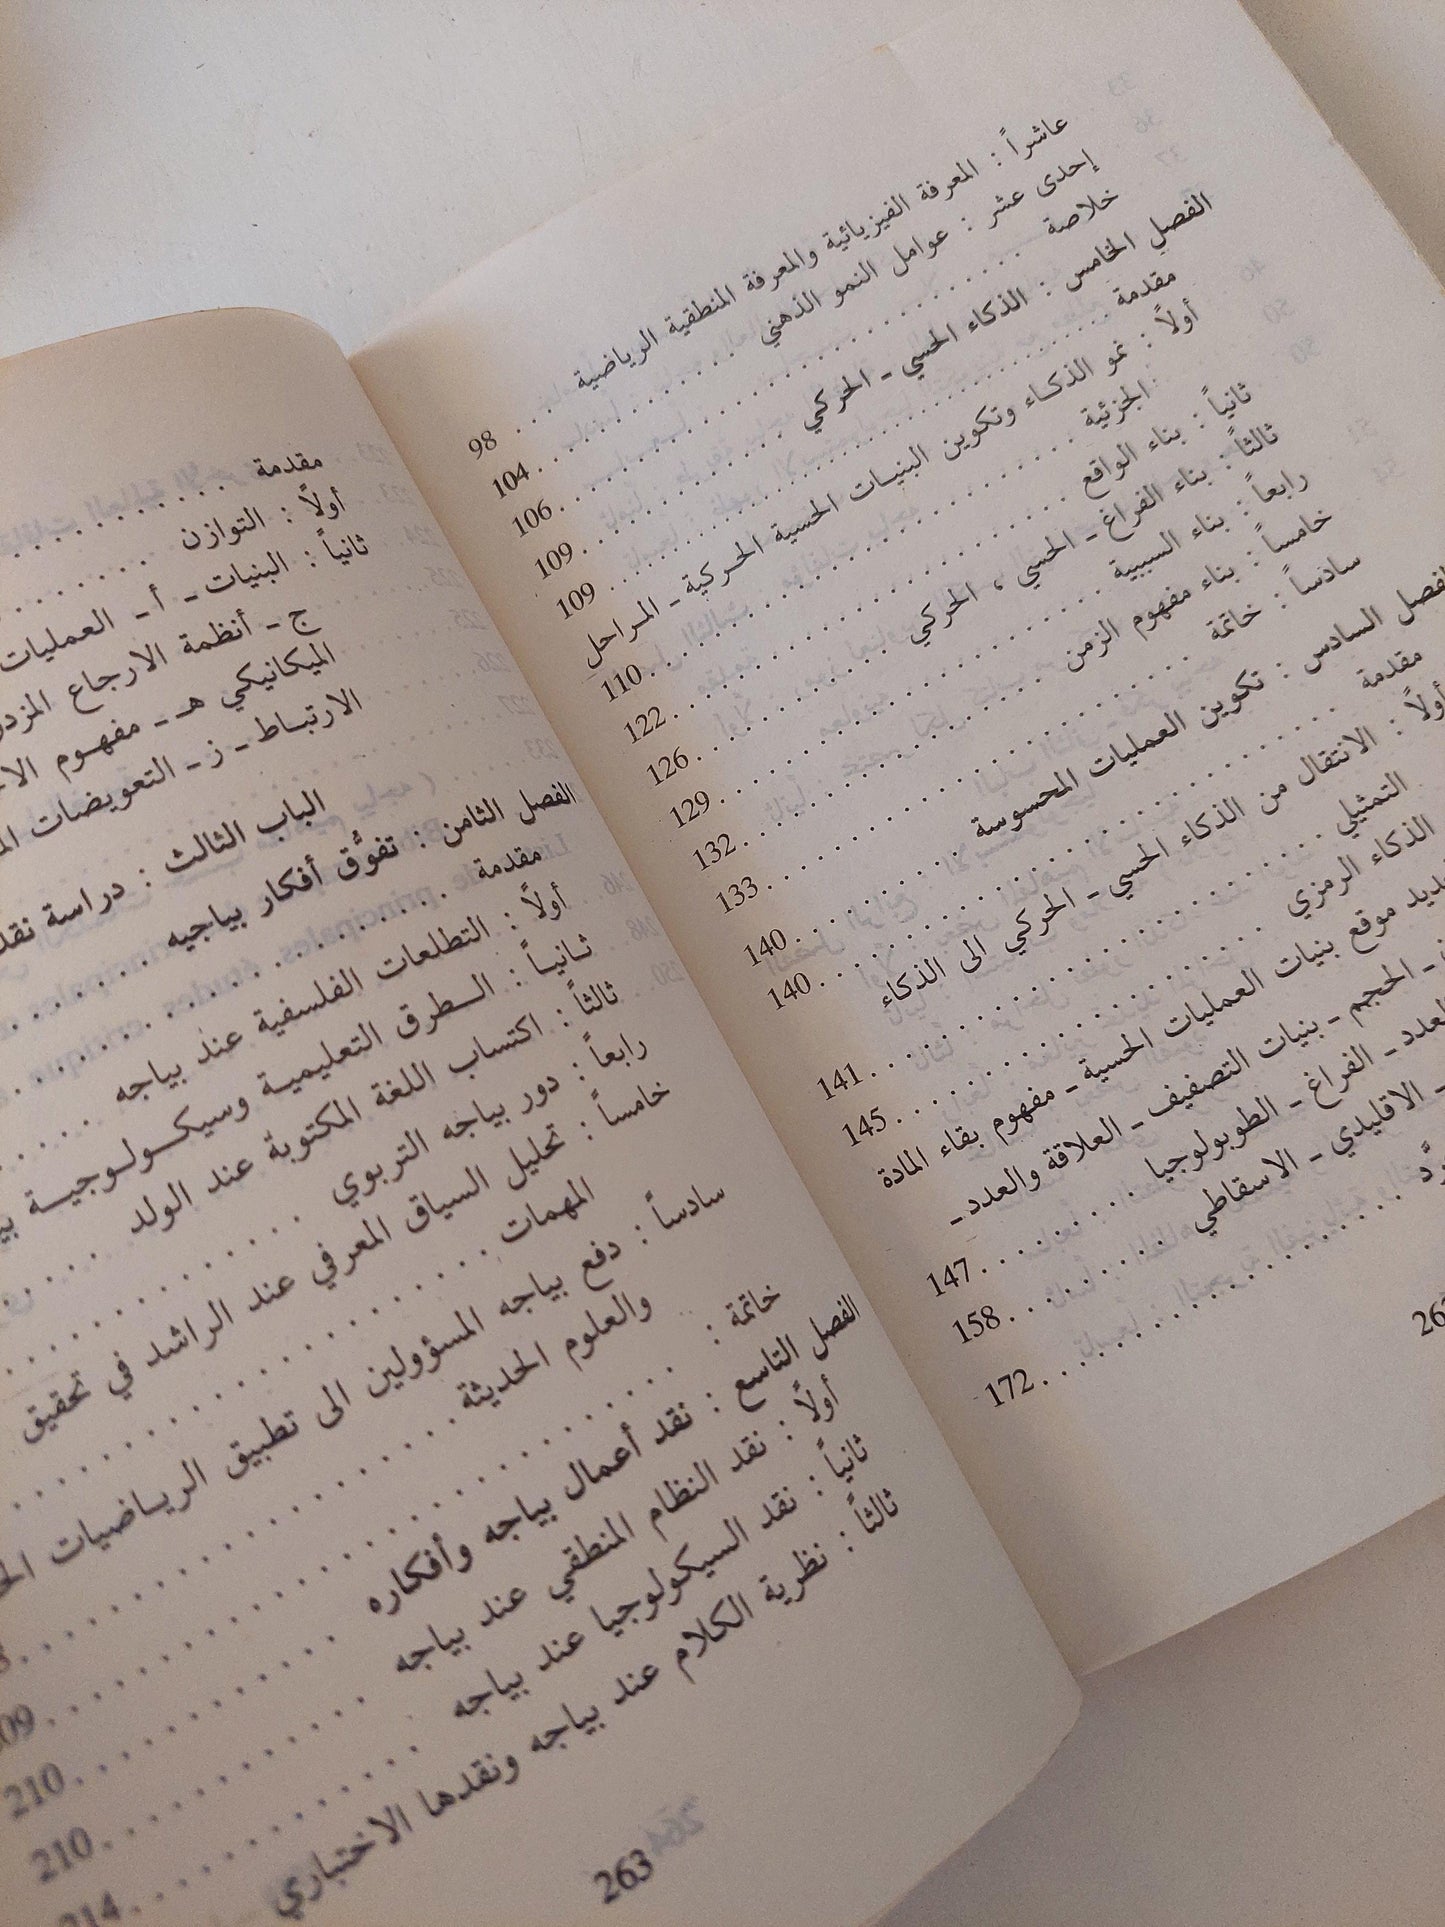 عاشراً : المعرفة الفيزيائية والمعرفة المنطقية الرياضية . . . 98
إحدى عشر : عوامل النمو الذهني . . . . . . . . . . 104
خلاصة . . . . . . . . . . . . . . . . . . . . 106
الفصل الخامس : الذكاء الحسي - الحركي . . . . . . . . . . 109
مقدمة . . . . . . . . . . . . . . . . . . . . 109
أولاً : نمو الذكاء وتكوين البنيات الحسية الحركية - المراحل
الجزئية . . . . . . . . . . . . . . . . . . . . 110
ثانياً : بناء الواقع . . . . . . . . . . . . . . . . 122
ثالثاً : بناء الفراغ - الحسي ، الحركي . . . . . . . . . . 126
رابعاً : بناء السببية . . . . . . . . . . . . . . . . 129
خامساً : بناء مفهوم الزمن . . . . . . . . . . . . . . 132
سادساً : خاتمة . . . . . . . . . . . . . . . . . . 133
الفصل السادس : تكوين العمليات المحسوسة . . . . . . . . . 140
مقدمة . . . . . . . . . . . . . . . . . . . . 140
أولاً : الانتقال من الذكاء الحسي - الحركي الى الذكاء
التمثيلي . . . . . . . . . . . . . . . . . . . . 141
الذكاء الرمزي . . . . . . . . . . . . . . . . . . 145
موقع بنيات العمليات الحسية - مفهوم بقاء المادة
- الحجم - بنيات التصفيف - العلاقة والعدد -
العدد - الفراغ - الطوبولوجيا . . . . . . . . . . 147
- الاقليدي - الاسقاطي . . . . . . . . . . 158
. . . . . . . . . . . . . . . . . . . . 172
مقدمة . . . . . . . . . .
أولاً : التوازن . . . . . . . .
ثانياً : البنيات - أ - العمليات
ج - أنظمة الارجاع
الميكانيكي هـ - مفهوم
الارتباط - ز - التعويضات
الباب الثالث : دراسة
الفصل الثامن : تفوُّق أفكار بياجيه . . . . . . . .
مقدمة . . . . . . . . . . . . . .
أولاً : التطلعات الفلسفية عند بياجه . . . . . .
ثانياً : الطرق التعليمية وسيكولوجية
ثالثاً : اكتساب اللغة المكتوبة عند الولد . . . . . .
رابعاً : دور بياجه التربوي . . . . . . . . . .
خامساً : تحليل السياق المعرفي عند الراشد في تحقيق
المهمات . . . . . . . . . . . . . . . .
سادساً : دفع بياجه المسؤولين الى تطبيق الرياضيات
والعلوم الحديثة . . . . . . . . . . . . . .
خاتمة : . . . . . . . . . . . . . . . .
الفصل التاسع : نقد أعمال بياجه وأفكاره . . . . . . . . 210
أولاً : نقد النظام المنطقي عند بياجه . . . . . . . . 210
ثانياً : نقد السيكولوجيا عند بياجه . . . . . . . . 214
ثالثاً : نظرية الكلام عند بياجه ونقدها الاختباري
263